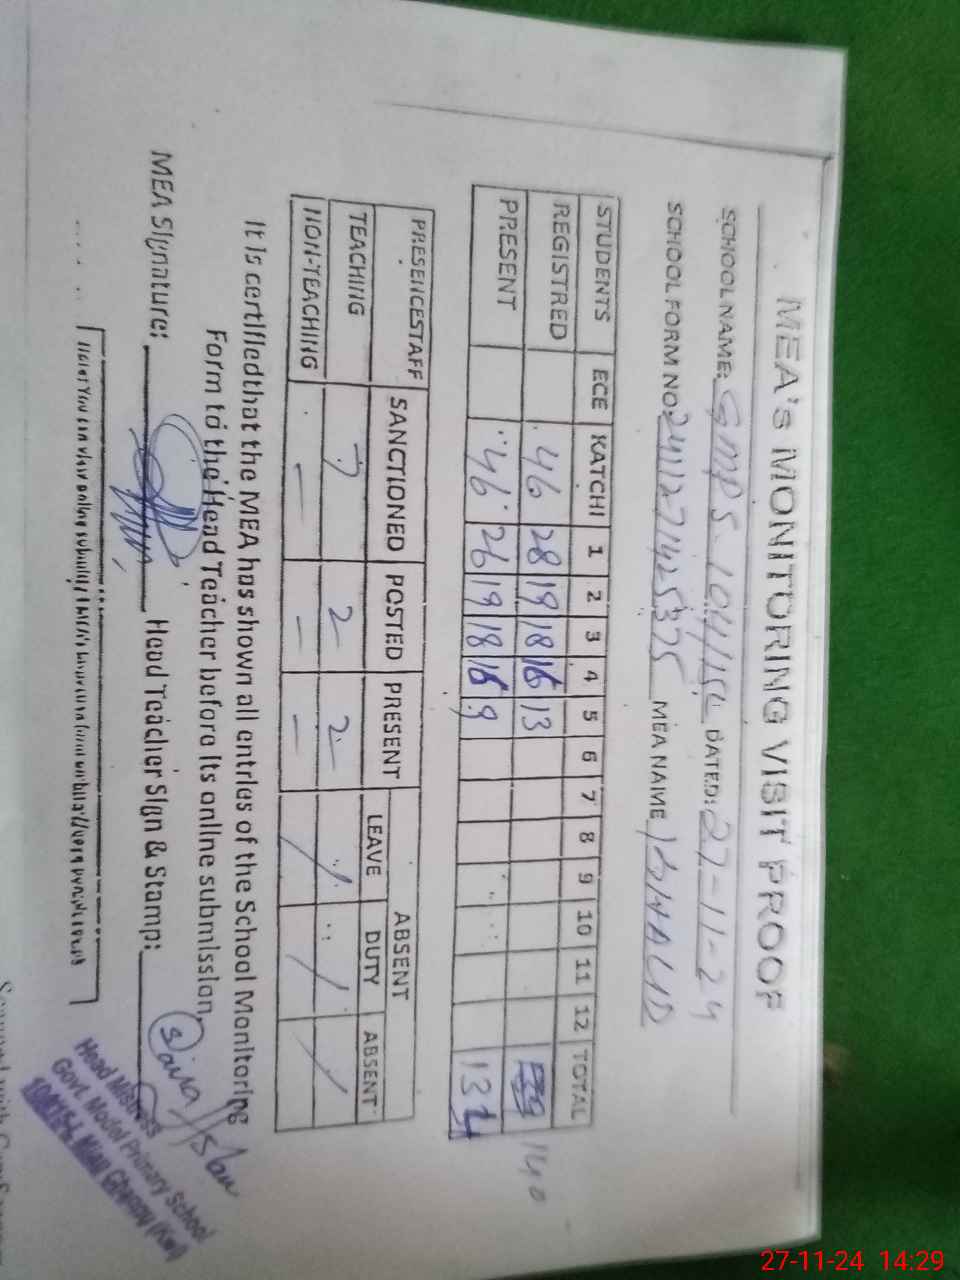 MEA's MONITORING VISIT PROOF
SCHOOL NAME: GMPS 104/15L DATED: 27-11-24
SCHOOL FORM NO: 2411271425375 MEA NAME KHALID
STUDENTS ECE KATCHI 1 2 3 4 5 6 7 8 9 10 11 12 TOTAL
REGISTRED 46 28 19 18 16 13 140
PRESENT 46 26 19 18 16 9 134
PRESENCESTAFF SANCTIONED POSTED PRESENT ABSENT
LEAVE DUTY ABSENT
TEACHING 7 2 2
NON-TEACHING — — —
It is certifiedthat the MEA has shown all entries of the School Monitoring
Form to the Head Teacher before its online submission.
MEA Signature: Head Teacher Sign & Stamp:
Head Mistress
Govt. Model Primary School
104/15-L Mian Channu (Kwl)
27-11-24 14:29